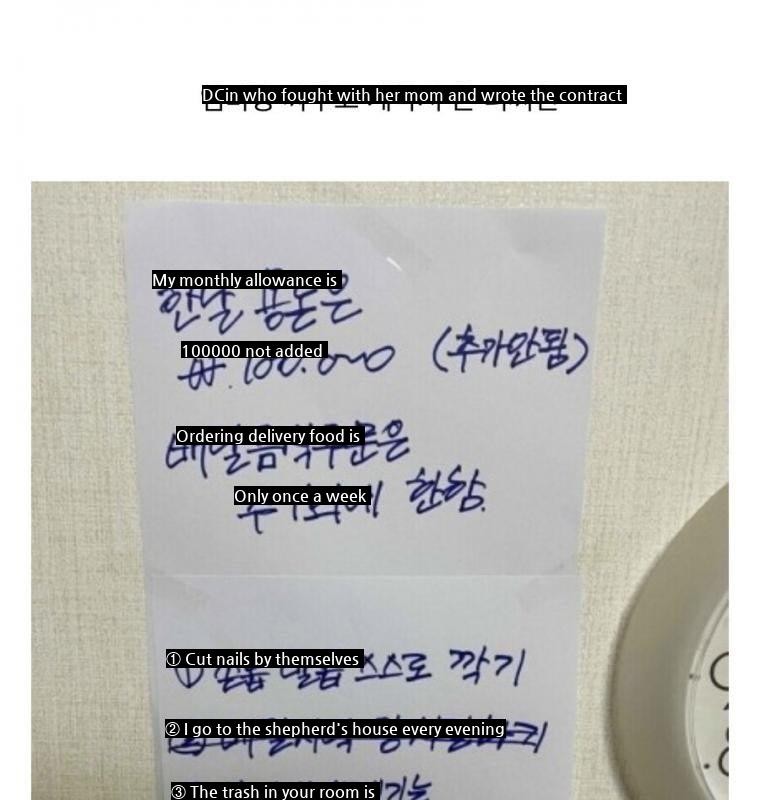 DCin who fought with her mom and wrote the contract
My monthly allowance is
한달 용돈은
100000 not added
₩.100.000 (추가안됨)
Ordering delivery food is
배달음식주문은
Only once a week
주1회에 한함.
① Cut nails by themselves
① 손톱 발톱 스스로 깍기
② I go to the shepherd's house every evening
③ The trash in your room is